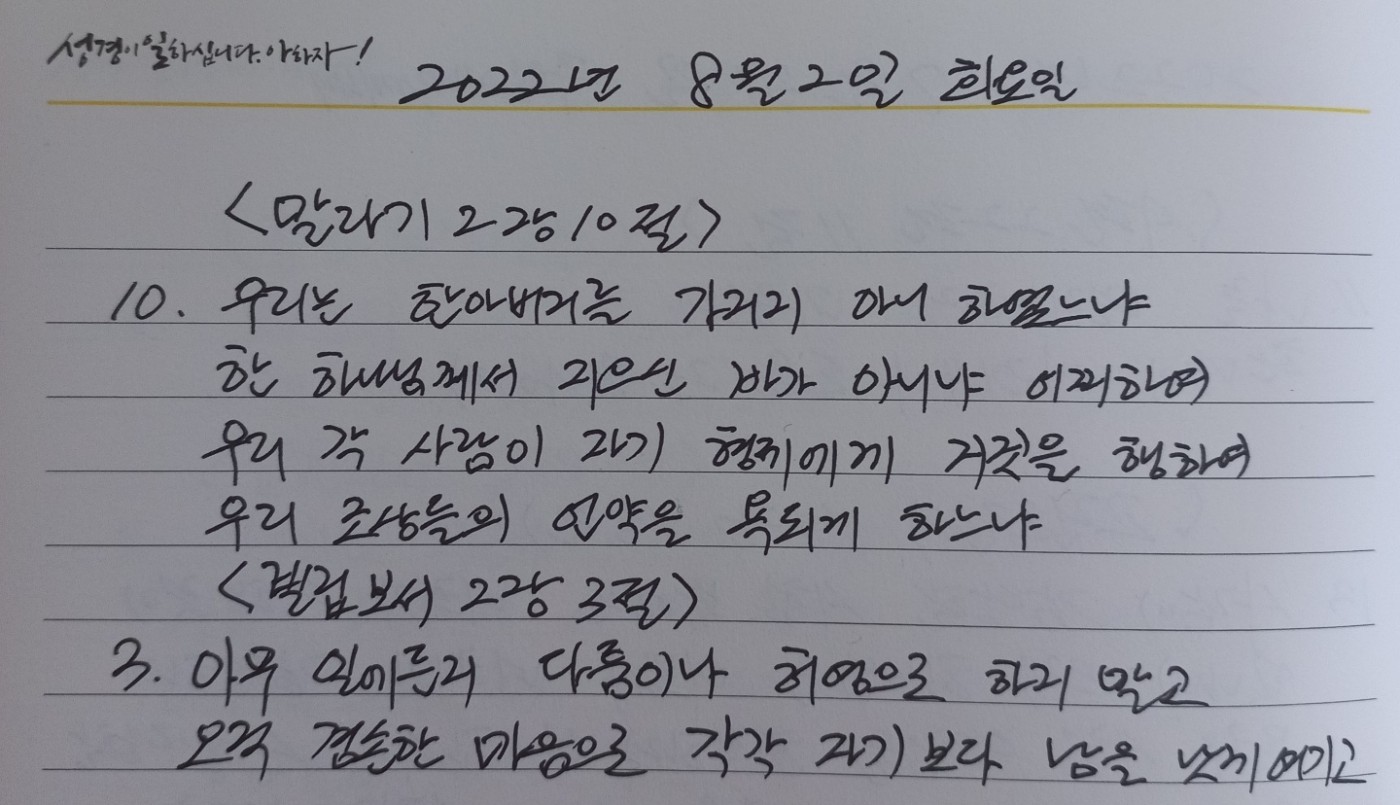 성경이 일하십니다. 아하자!
2022년 8월 2일 화요일
<말라기 2장 10절>
10. 우리는 한 아버지를 가지지 아니 하였느냐
한 하나님께서 지으신 바가 아니냐 어찌하여
우리 각 사람이 자기 형제에게 거짓을 행하여
우리 조상들의 언약을 욕되게 하느냐
<빌립보서 2장 3절>
3. 아무 일에든지 다툼이나 허영으로 하지 말고
오직 겸손한 마음으로 각각 자기보다 남을 낫게 여기고